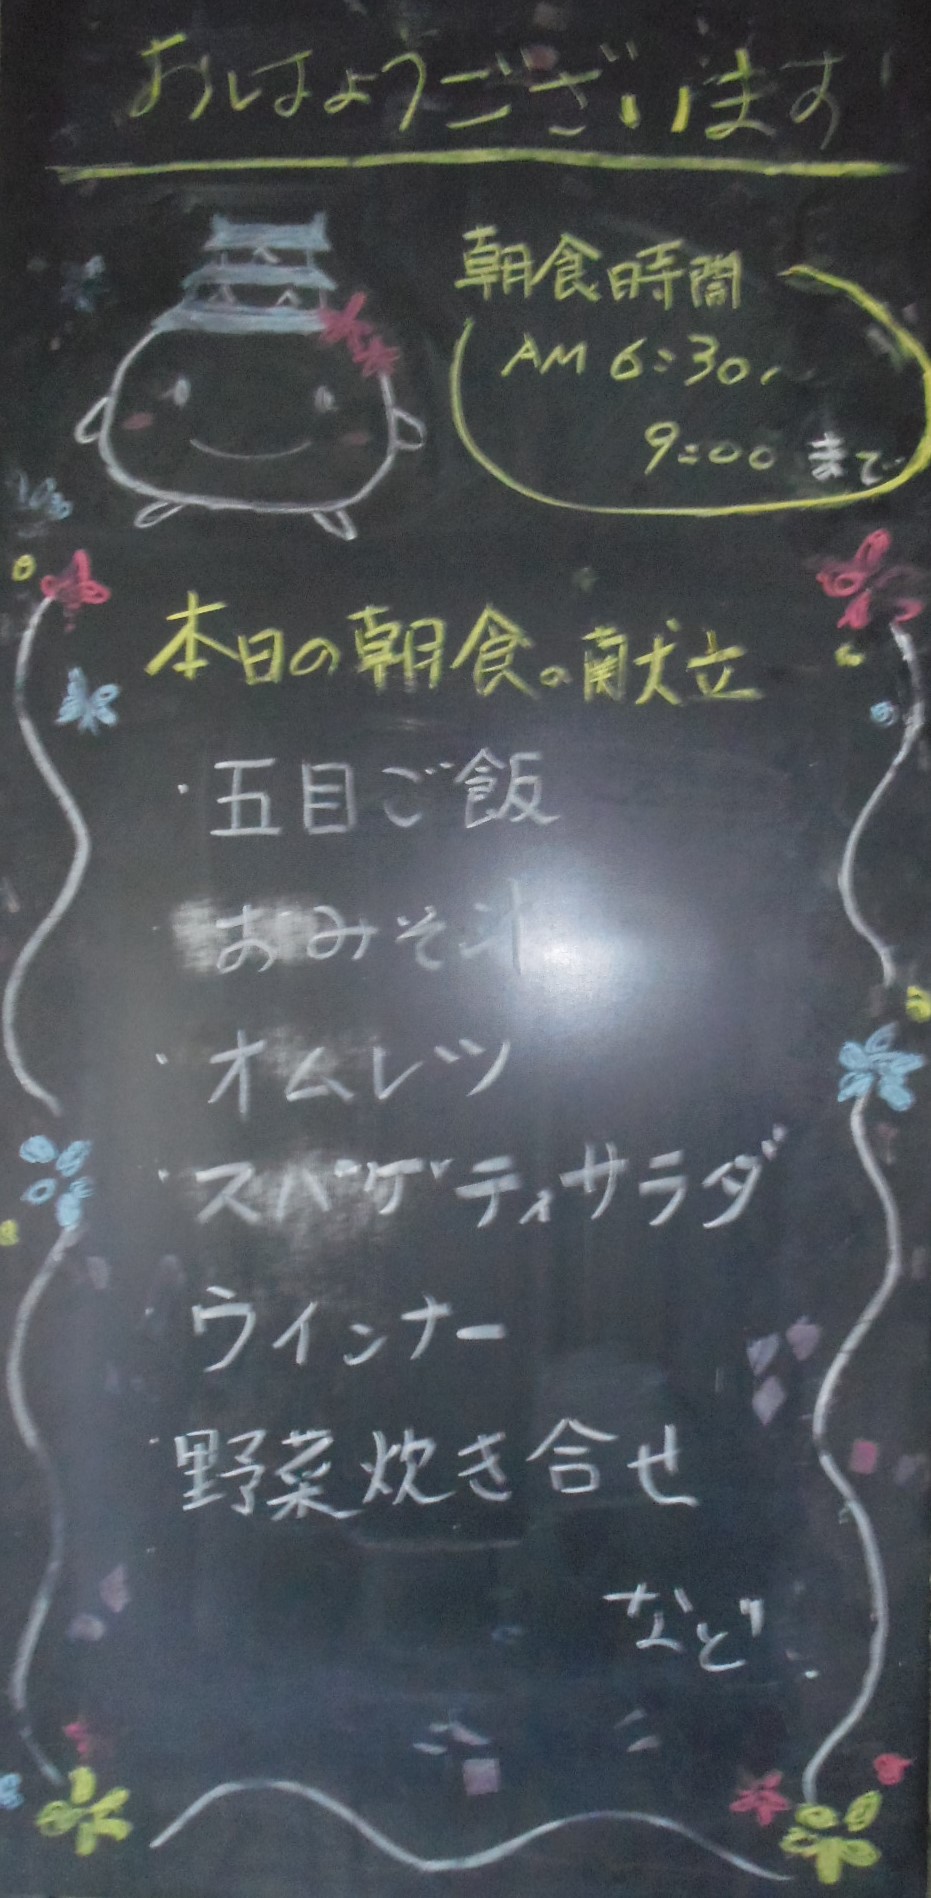 おはようございます
朝食時間
AM 6:30〜
9:00 まで
本日の朝食の献立
・五目ご飯
・おみそ汁
・オムレツ
・スパゲティサラダ
・ウインナー
・野菜炊き合せ
など